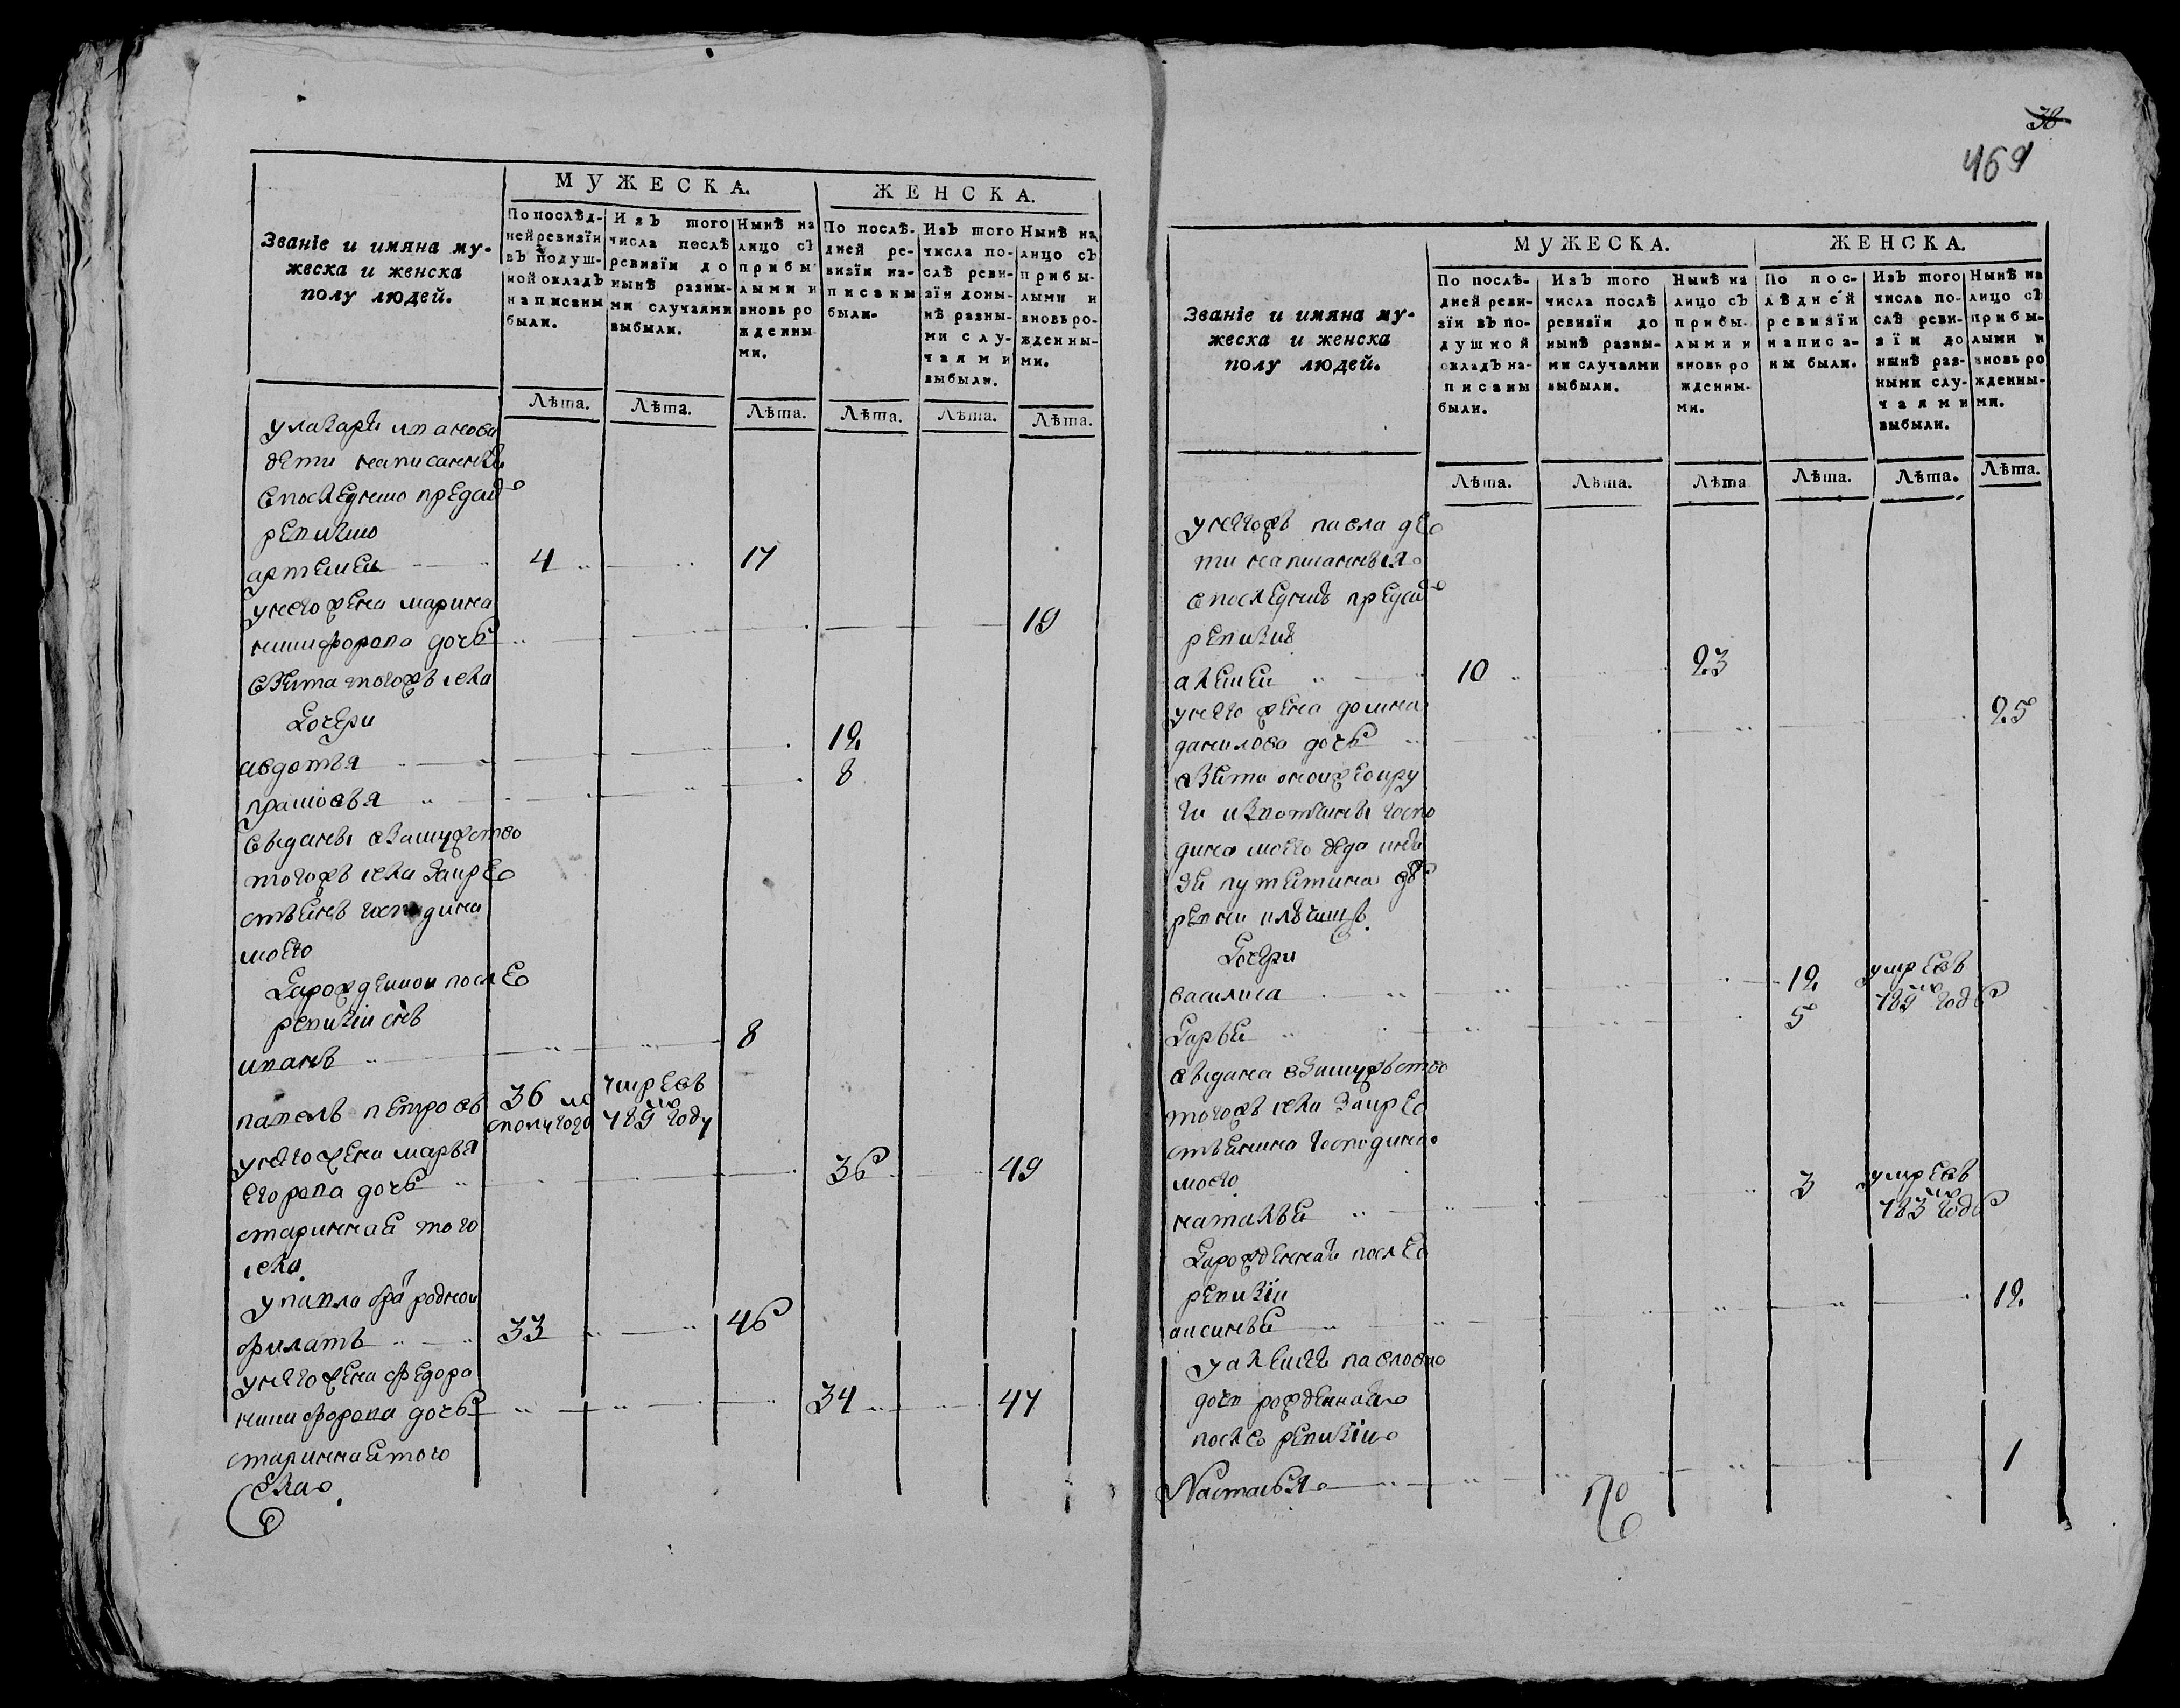 38
469
МУЖЕСКА. ЖЕНСКА.
Званіе и имяна мужеска и женска полу людей.
По послѣдней ревизіи въ подушной окладъ написаны были.
Изъ того числа послѣ ревизіи до нынѣ разными случаями выбыли.
Нынѣ на лицо съ прибылыми и вновь рожденными.
По послѣдней ревизіи написаны были.
Изъ того числа послѣ ревизіи донынѣ разными случаями выбыли.
Нынѣ на лицо съ прибылыми и вновь рожденными.
Лѣта. Лѣта. Лѣта. Лѣта. Лѣта. Лѣта.
у лазаря иванова
дети написанныи
в последнюю пред сию
ревизию
артемеи 4 17
у него жена марина
никифорова дочь 19
взята того жъ села
дочери
авдотья 12
прасковья 8
выданы в замужство
того жъ села за кре
стьянъ господина
моего
да рожденнои после
ревизии сынъ
иванъ 8
павелъ петровъ 36 умре въ
789 мъ году
у него жена марья
егорова дочь 36 49
стариннаѣ того
села
у павла бра родной
филатъ 33 46
у него жена федора
никифорова дочь 34 47
стариннаѣ того
села
МУЖЕСКА. ЖЕНСКА.
Званіе и имяна мужеска и женска полу людей.
По послѣдней ревизіи въ подушной окладъ написаны были.
Изъ того числа послѣ ревизіи до нынѣ разными случаями выбыли.
Нынѣ на лицо съ прибылыми и вновь рожденными.
По послѣдней ревизіи написаны были.
Изъ того числа послѣ ревизіи до нынѣ разными случаями выбыли.
Нынѣ на лицо съ прибылыми и вновь рожденными.
Лѣта. Лѣта. Лѣта Лѣта. Лѣта. Лѣта.
у него жъ павла де
ти написанныя
в последнюю пред сию
ревизию
алексеи 10 23
у него жена домна
данилова дочь 25
взята
госпо
дина моего деда
де
ревни
дочери
василиса 12 умре въ
789 мъ годѣ
дарья 5
выдана в замужьство
того жъ села за кре
стьянина господина
моего
наталья 3 умре въ
783 мъ годѣ
да рожденнаѣ после
ревизіи
аксинья 12
у алексея павлова
дочь рожденнаѣ
после ревизіи
Настасья 1